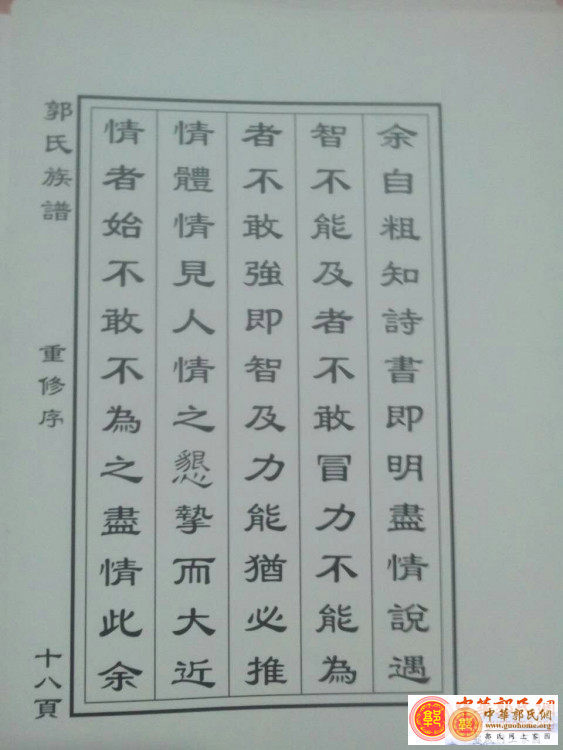 余自粗知詩書即明盡情說遇
智不能及者不敢冒力不能為
者不敢強即智及力能猶必推
情體情見人情之懇摯而大近
情者始不敢不為之盡情此余
郭氏族譜
重修序
十八頁
中華郭氏網
中華郭氏網
www.guohome.org
郭氏网上家园